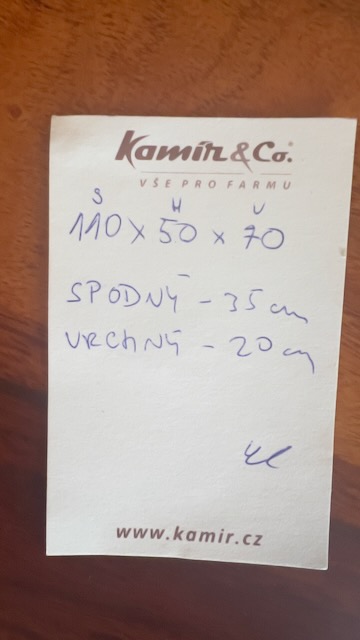 Kamír & Co.®
VŠE PRO FARMU
Š H V
110 x 50 x 70
SPODNÝ - 35 cm
VRCHNÝ - 20 cm
www.kamir.cz